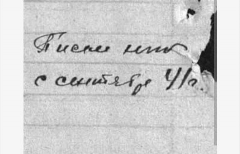 Писем нет
с сентября 41 г.